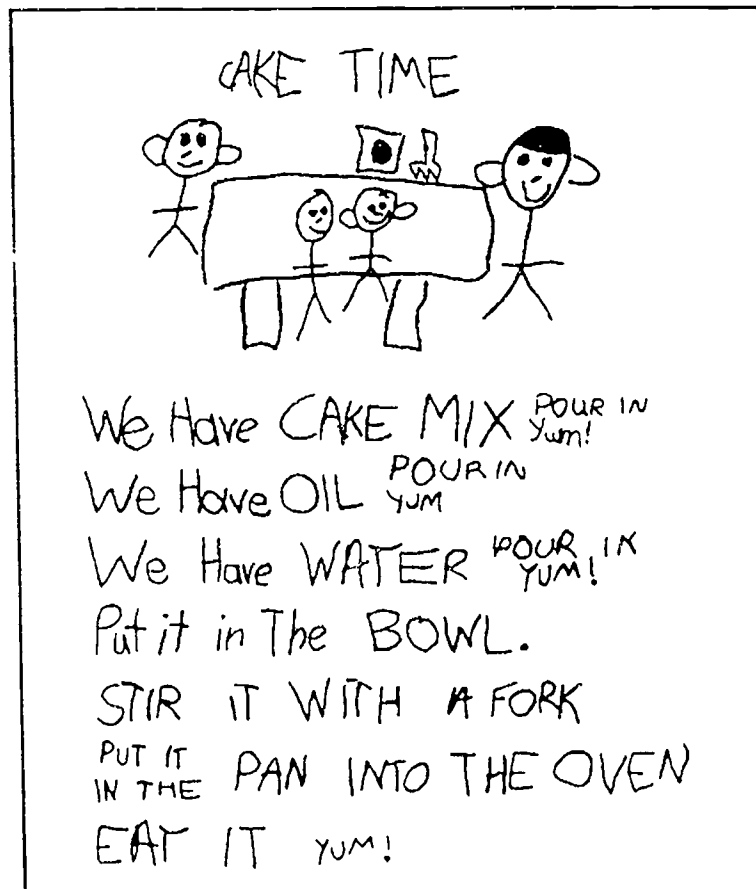 CAKE TIME
We Have CAKE MIX POUR IN Yum!
We Have OIL POUR IN YUM
We Have WATER POUR IN YUM!
Put it in The BOWL.
STIR IT WITH A FORK
PUT IT IN THE PAN INTO THE OVEN
EAT IT YUM!